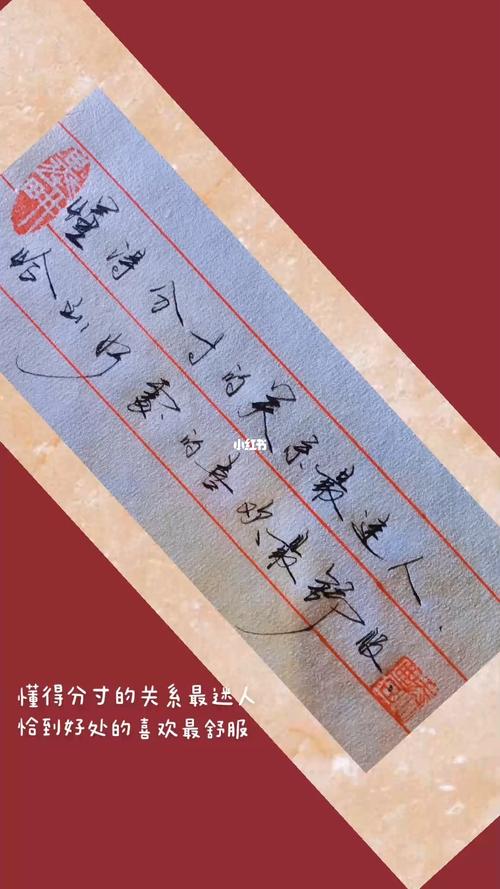 懂得分寸的关系最迷人
恰到好处的喜欢最舒服
小红书
懂得分寸的关系最迷人
恰到好处的喜欢最舒服